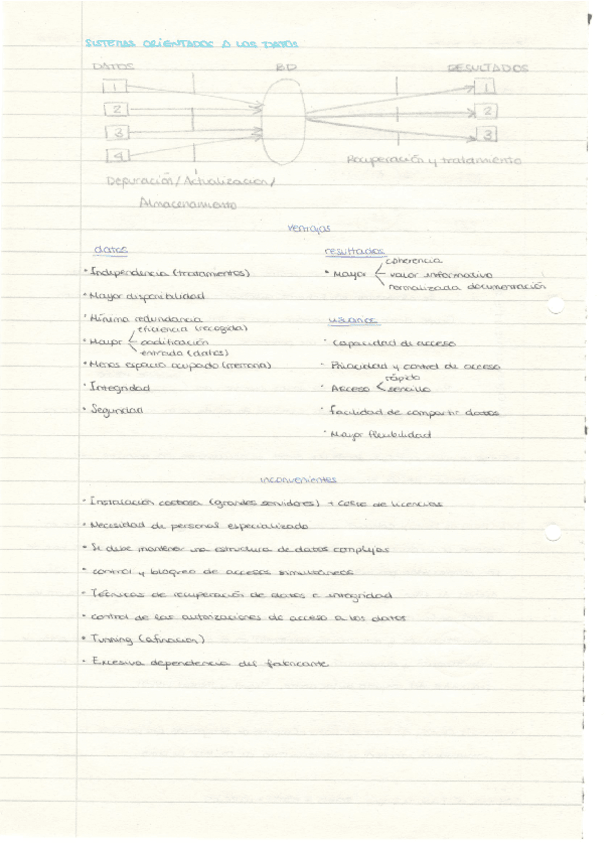 SISTEMAS ORIENTADOS A LOS DATOS
DATOS BD RESULTADOS
1 1
2 2
3 3
4
Recuperación y tratamiento
Depuración / Actualización /
Almacenamiento
Ventajas
datos
• Independencia (tratamientos)
• Mayor disponibilidad
• Mínima redundancia
• Mayor
eficiencia (recogida)
codificación
entrada (datos)
• Menos espacio ocupado (memoria)
• Integridad
• Seguridad
resultados
• Mayor
coherencia
valor informativo
normalizada documentación
usuarios
• Capacidad de acceso
• Privacidad y control de acceso
• Acceso
rápido
sencillo
• facilidad de compartir datos
• Mayor flexibilidad
inconvenientes
• Instalación costosa (grandes servidores) + coste de licencias
• Necesidad de personal especializado
• Se debe mantener una estructura de datos complejas
• control y bloqueo de accesos simultáneos
• Técnicas de recuperación de datos e integridad
• control de las autorizaciones de acceso a los datos
• Tunning (afinación)
• Excesiva dependencia del fabricante